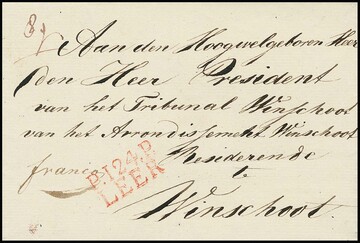 Aan den Hoogwelgeboren Heer
den Heer President
van het Tribunal Winschoot
van het Arrondissement Winschoot
Residerende
franco
te
P.124.P.
LEER
Winschoot.